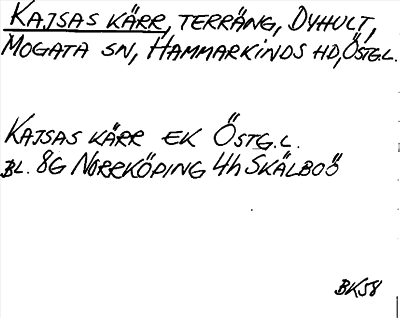 KAJSAS KÄRR, TERRÄNG, DYHULT,
MOGATA SN, HAMMARKINDS HD, ÖSTG.L.
KAJSAS KÄRR EK ÖSTG.L.
BL. 8G NORRKÖPING 4h SKÄLBOÖ
BK58